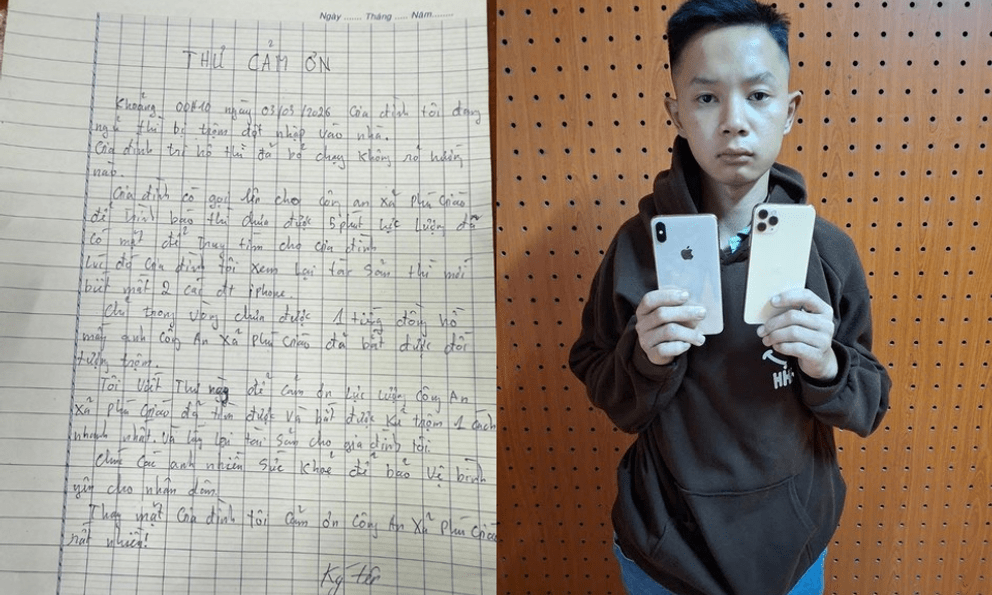 Ngày ....... Tháng ..... Năm...........
THƯ CẢM ƠN
Khoảng 00h10 ngày 03/03/2026 Gia đình tôi đang
ngủ thì bị trộm đột nhập vào nhà.
Gia đình tri hô thì đã bỏ chạy không rõ hướng
nào.
Gia đình có gọi lên cho công an xã Phú Giáo
để trình báo thì chưa được 5 phút lực lượng đã
có mặt để truy tìm cho gia đình
lúc đó gia đình tôi xem lại tài sản thì mới
biết mất 2 cái đt iphone.
Chỉ trong vòng chưa được 1 tiếng đồng hồ
mấy anh Công An Xã Phú Giáo đã bắt được đối
tượng trộm.
Tôi viết Thư này để cảm ơn lực lượng Công An
Xã Phú Giáo đã tìm được và bắt được kẻ trộm 1 cách
nhanh nhất và lấy lại tài sản cho gia đình tôi.
Chúc các anh nhiều sức khoẻ để bảo vệ bình
yên cho nhân dân.
Thay mặt Gia đình tôi Cảm ơn Công An Xã Phú Giáo
rất nhiều!
Ký tên
HH